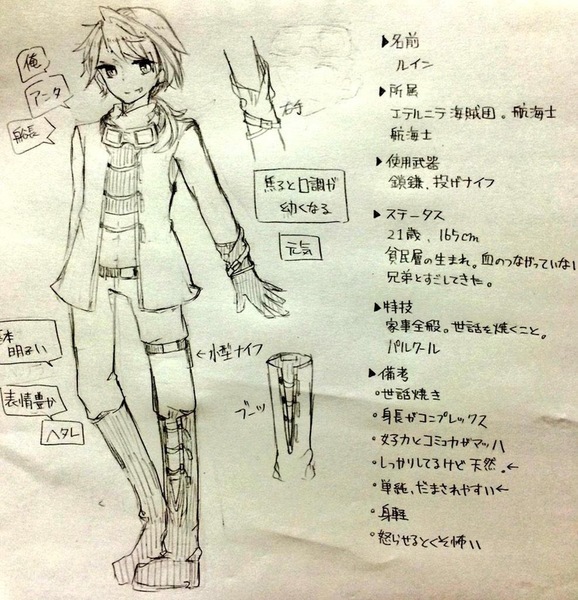 俺
アンタ
船長
右手
焦ると口調が
幼くなる
元気
基本
明るい
表情豊か
ヘタレ
←小型ナイフ
ブーツ
▶名前
ルイン
▶所属
エテルニテ海賊団。航海士
航海士
▶使用武器
鎖鎌、投げナイフ
▶ステータス
21歳、165cm
貧民層の生まれ。血のつながっていない
兄弟とすごしてきた。
▶特技
家事全般。世話を焼くこと。
パルクール
▶備考
・世話焼き
・身長がコンプレックス
・女子力とコミュ力がマッハ
・しっかりしてるけど天然。←
・単純、だまされやすい←
・身軽
・怒らせるとくそ怖い